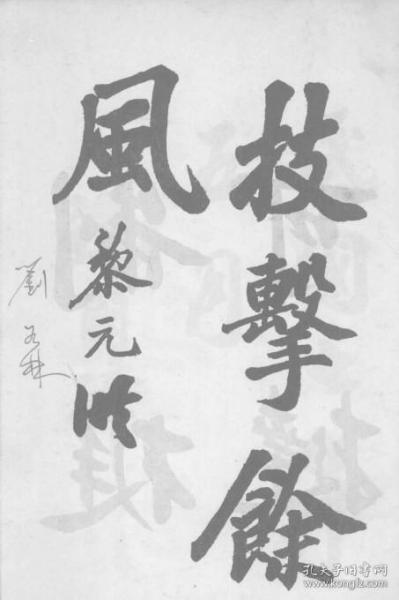 技擊餘
風
黎元洪
劉
孔夫子旧书网
www.kongfz.com